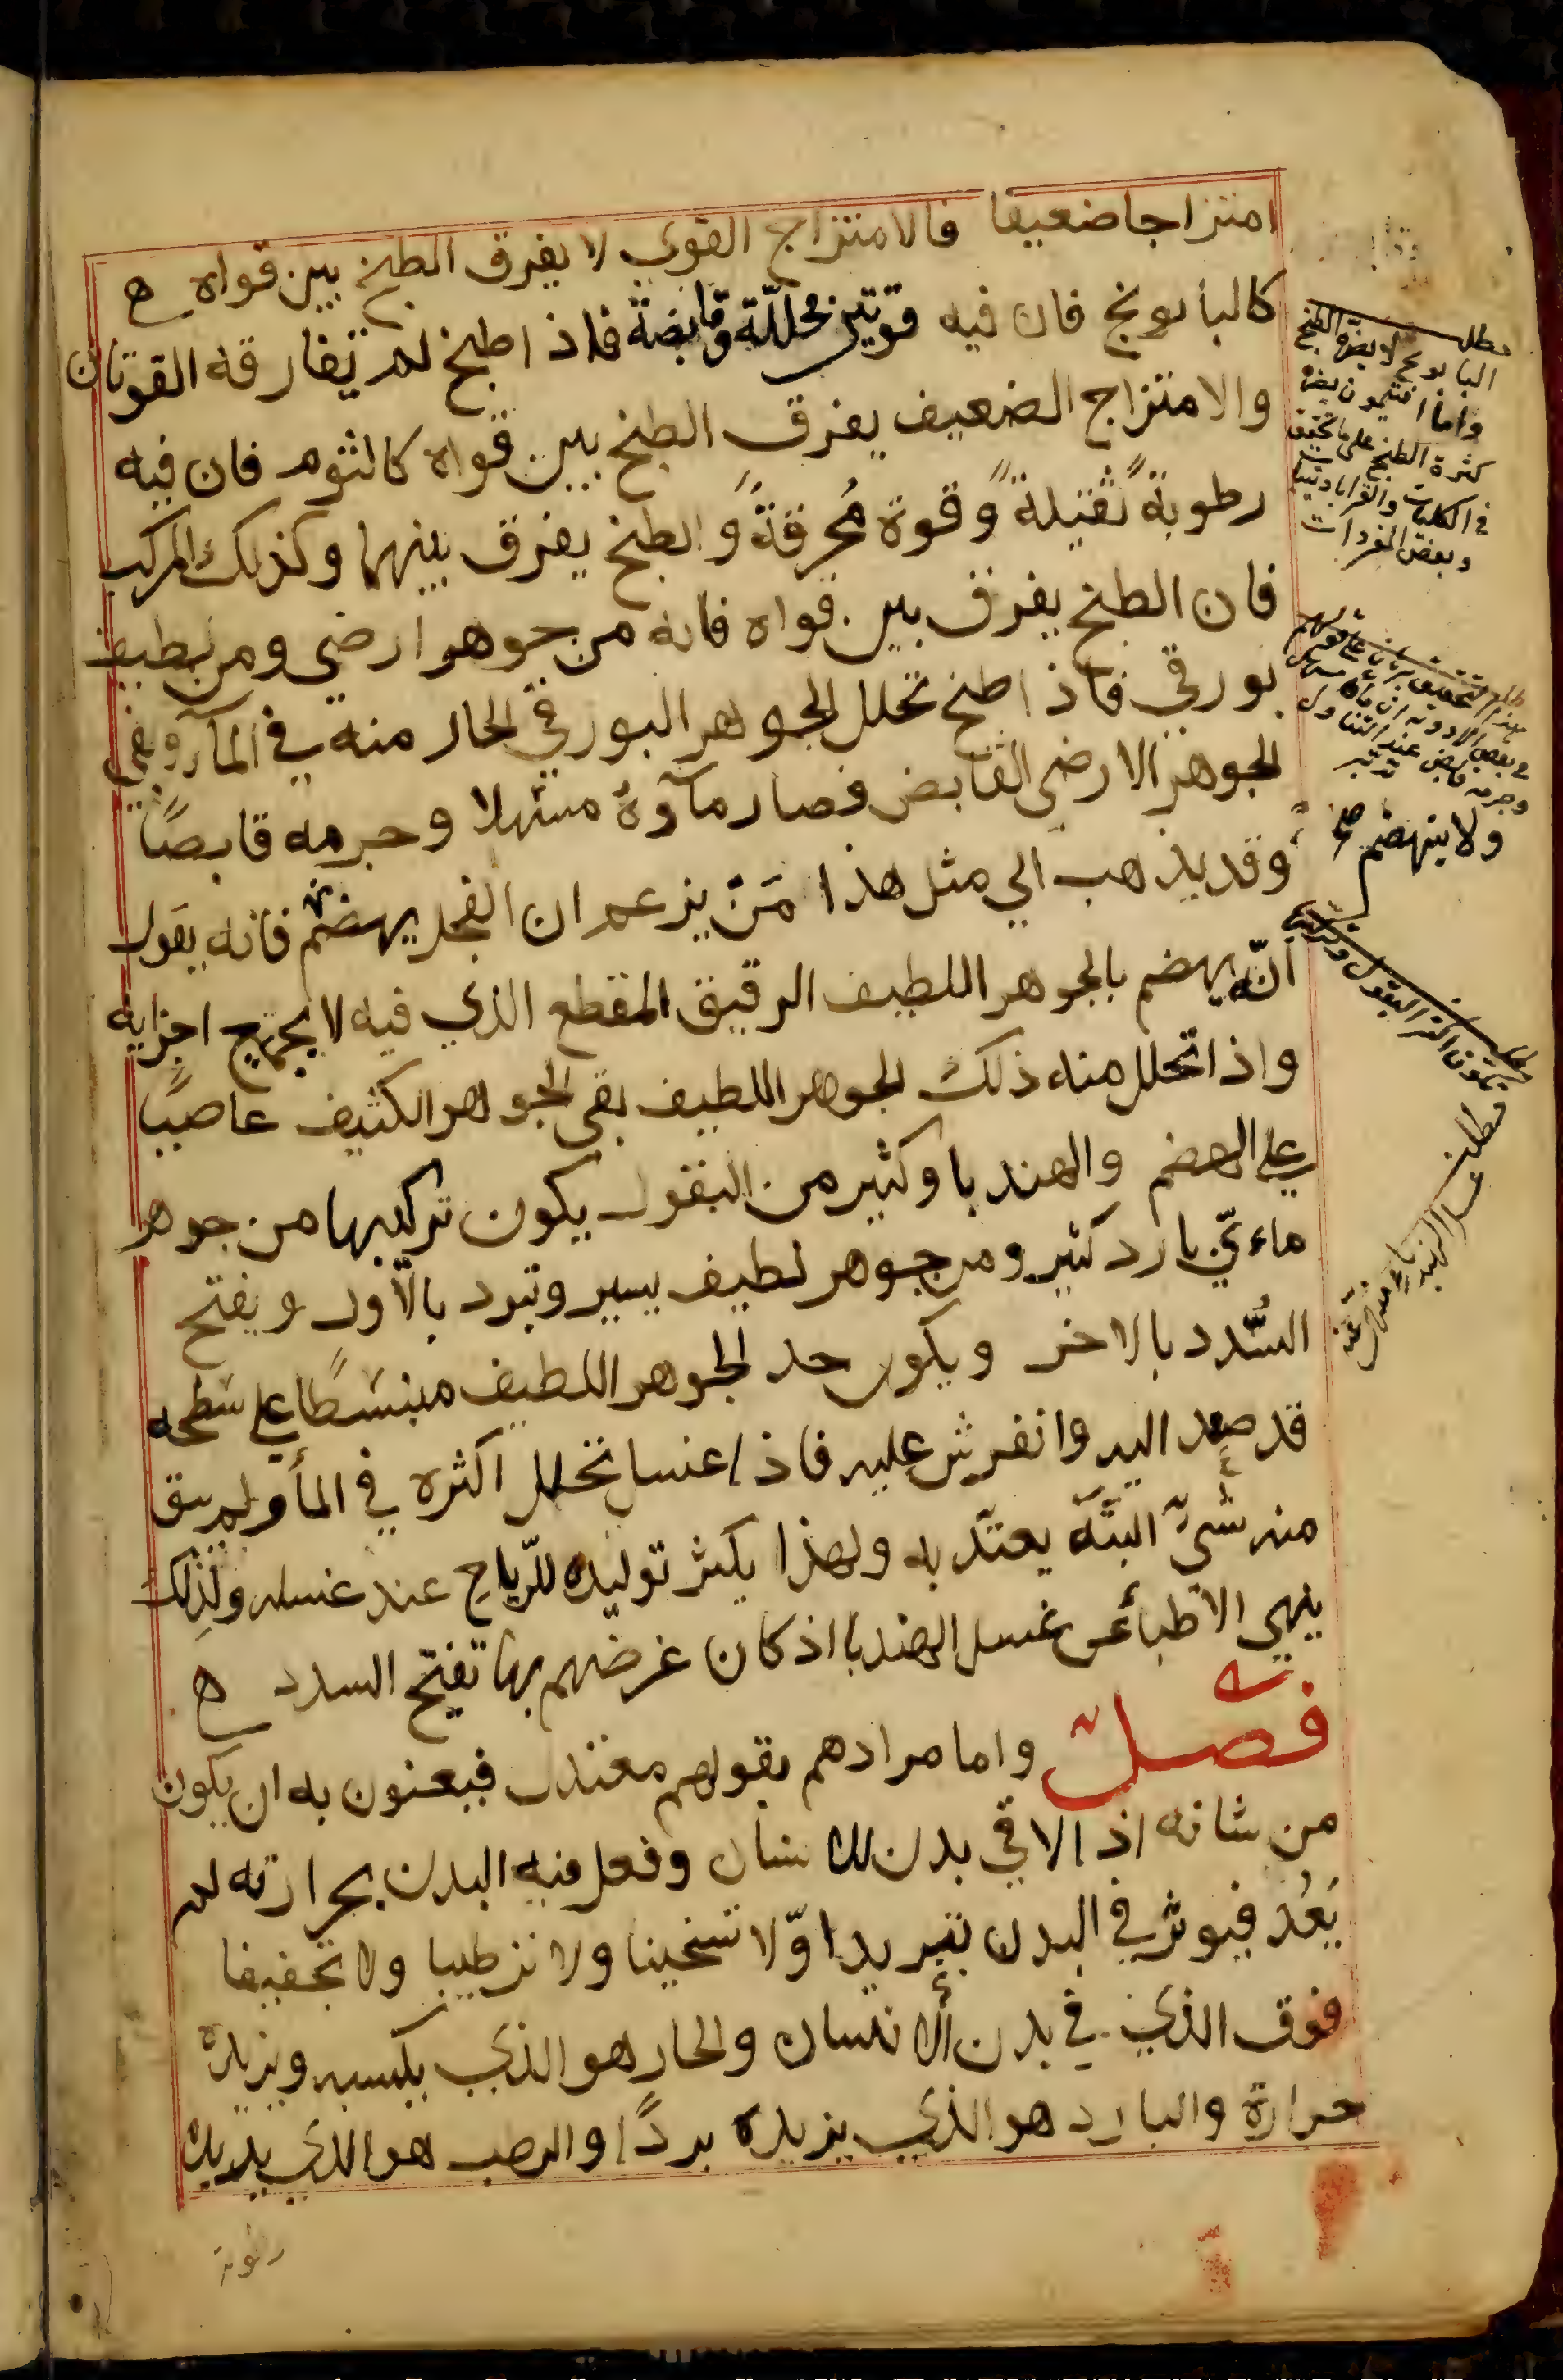 امتزاجا ضعيفا فالامتزاج القوي لا يفرق الطبخ بين قواه ه
كالبابونج فان فيه قوتين محللّة وقابضة فاذا طبخ لم تفارقه القوتان
والامتزاج الضعيف يفرق الطبخ بين قواه كالثوم فان فيه
رطوبة ثقيلة وقوة مُحرقةً والطبخ يفرق بينهما وكذلك المركب
فان الطبخ يفرق بين قواه فانه من جوهر ارضي ومن لطيف
بورقي فاذا طبخ تحلل الجوهر البورقي الحار منه في المآء وبقي
الجوهر الارضي القابض فصار مآؤهُ مسهلا وجرمه قابضًا
وقد يذهب الي مثل هذا مَنْ يزعم ان الفجل يهضم فانه يقول
انّه يهضم بالجوهر اللطيف الرقيق المقطع الذي فيه لا بجميع اجزايه
واذا تحلل منه ذلك الجوهر اللطيف بقي الجوهر الكثيف عاصيًا
علي الهضم والهندبا وكثير من البقول يكون تركيبها من جوهر
ماءيّ بارد كثير ومن جوهر لطيف يسير وتبرد بالاول ويفتح
السُّدد بالاخر ويكون حد الجوهر اللطيف منبسَطًا علي سَطحه
قد صعد اليه وانفرش عليه فاذا غسل تحلل اكثره في المأ ولم يبق
منه شيٌ البتَّة يعتدّ به ولهذا يكثر توليده للرّياح عند غسله ولذلِك
ينهي الاطبأ عن غسل الهندبا اذ كان غرضهم بها تفتيح السدد ه
فصل واما مرادهم بقولهم معتدل فيعنون به ان يكون
من شانه اذا لاقي بدن الانسان وفعل فيه البدن بحرارته لم
يَعُد فيوثر في البدن تبريدا ولا تسخينا ولا ترطيبا ولا تجفيفا
فوق الذي في بدن الانسان والحار هو الذي يكسبه ويزيده
حرارة والبارد هو الذي يزيده بردًا والرطب هو الذي يزيده
رطوبة
مطلب
البابونج لا يضرّه الطبخ
واما افتيمون يضره
كثرة الطبخ علي ما تحقق
في الكليات والقرابادينات
وبعض المفردات
ولا ينهضم صح
مطلب
غسل الهندباء منهي عنه